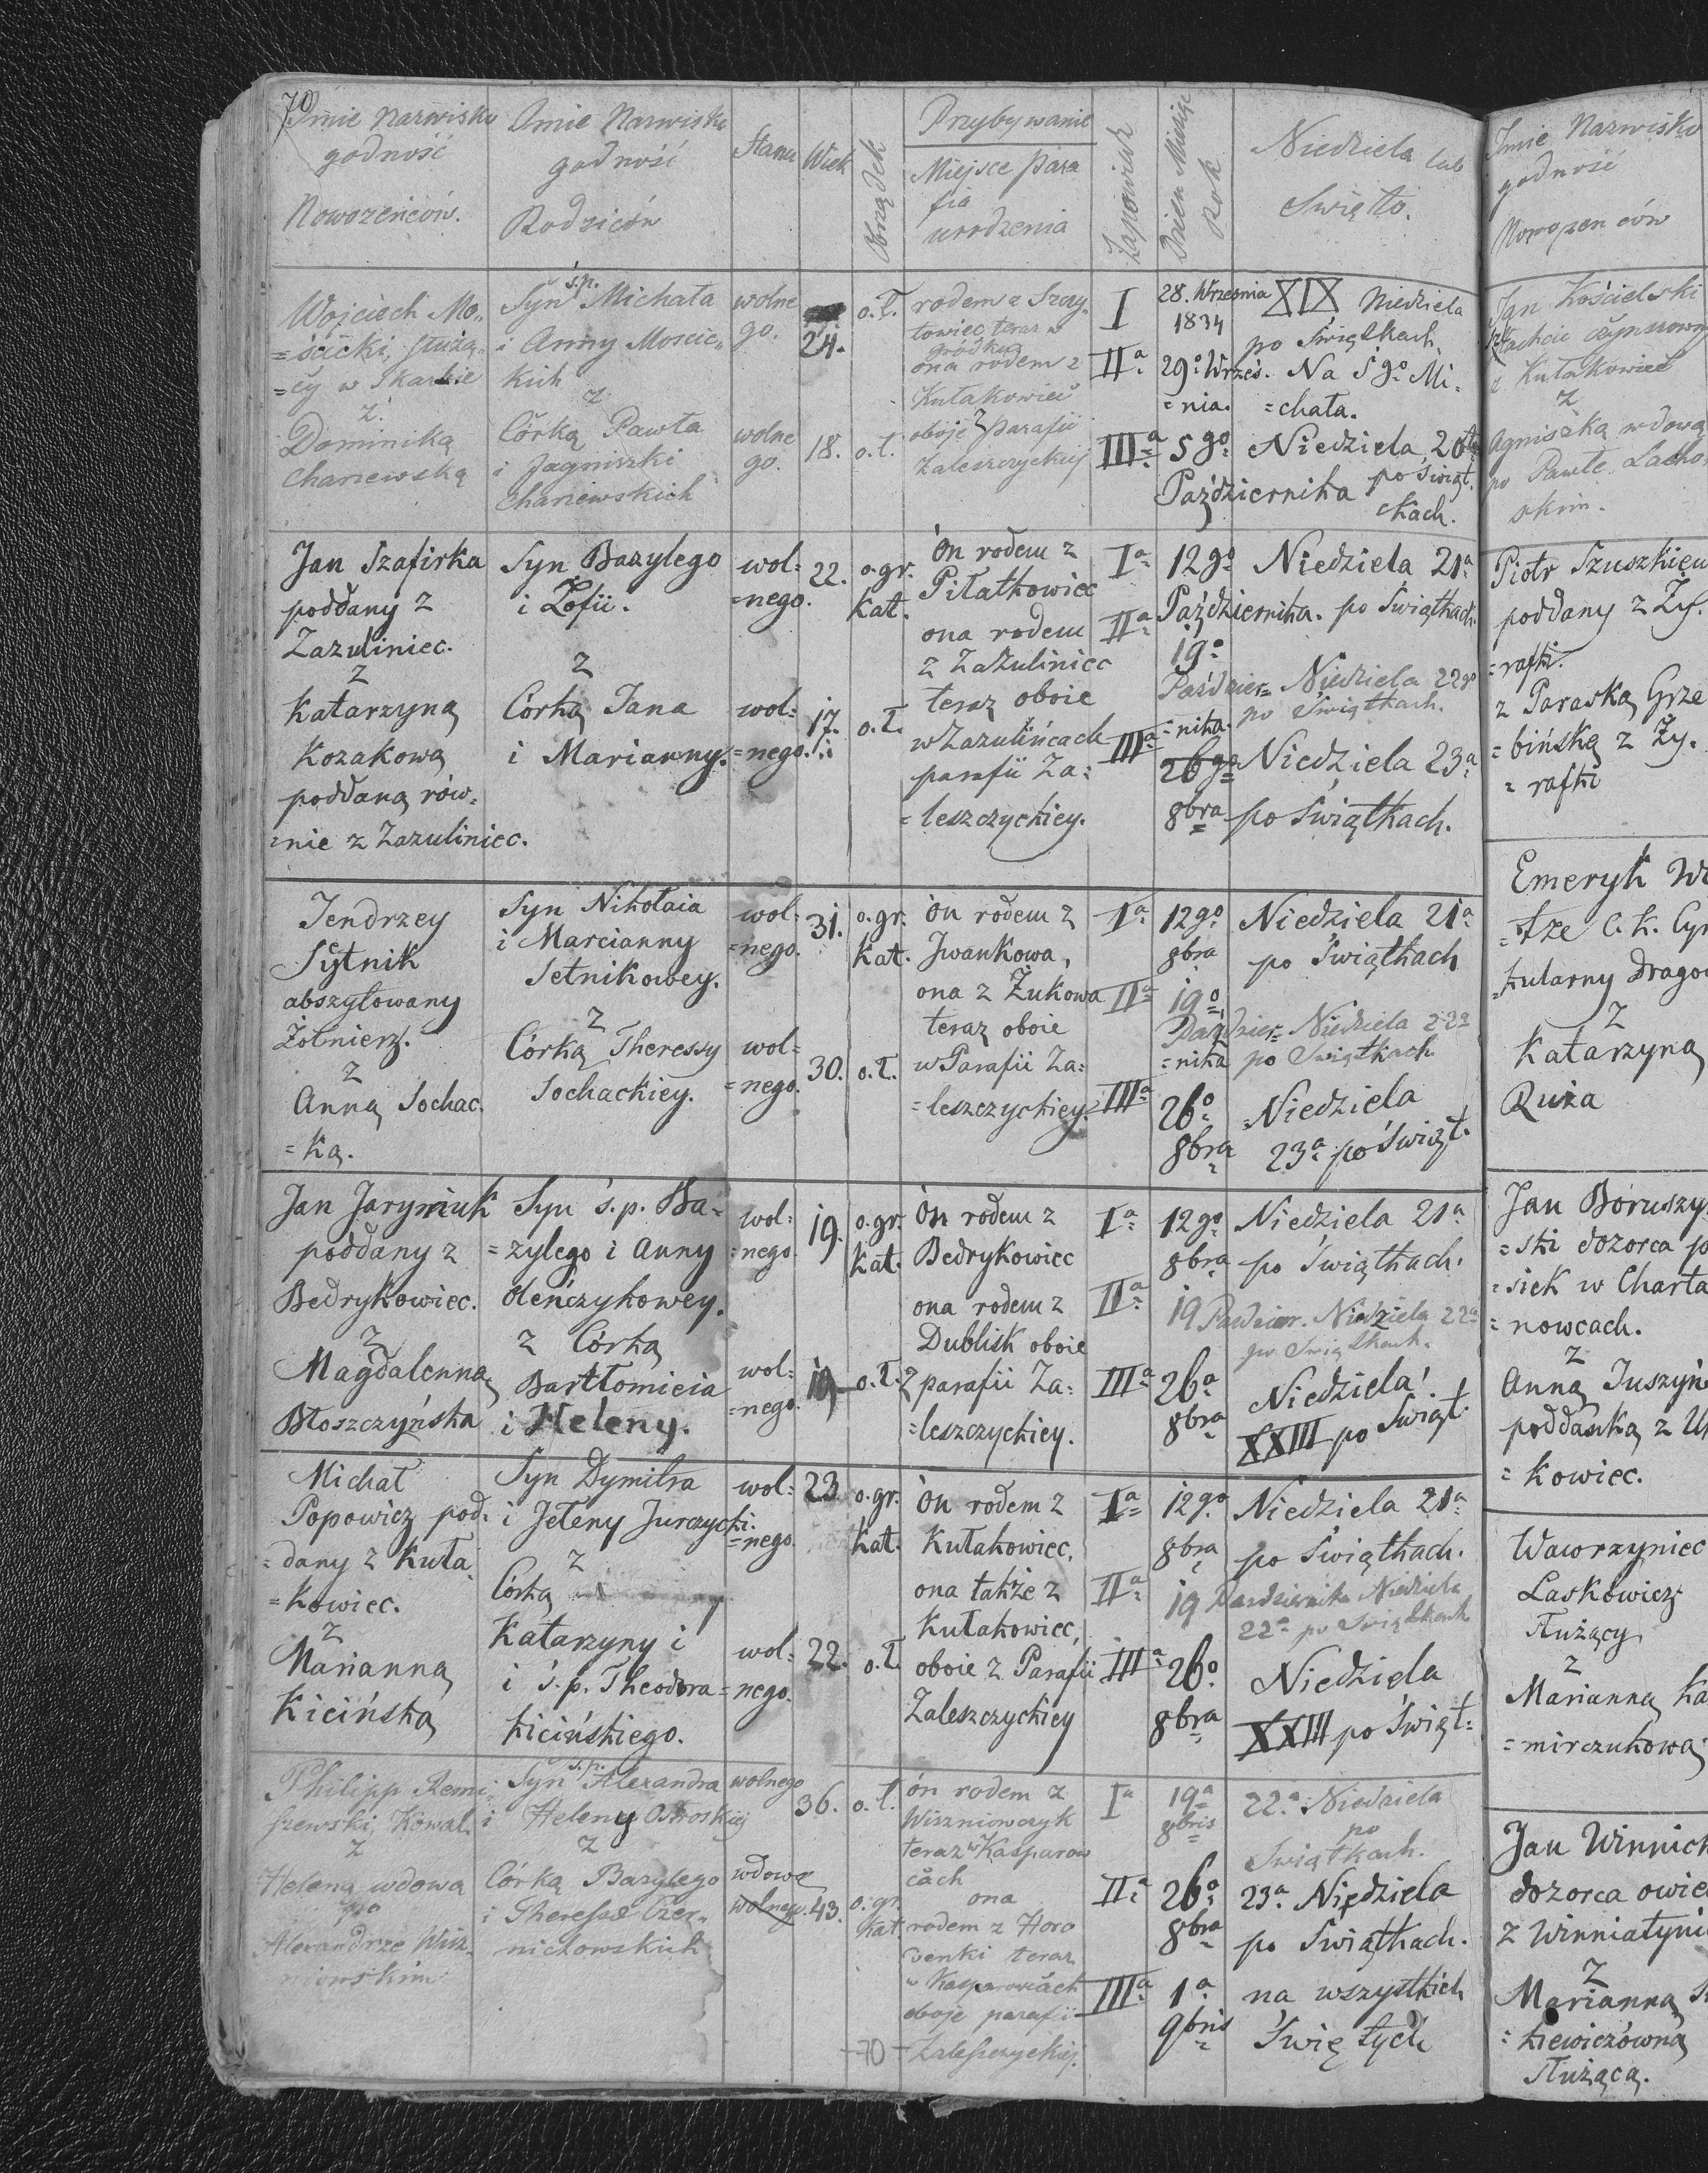 70
Imie Nazwisko
godność
Nowożeńców.
Imie Nazwisko
godność
Rodziców
Stanu
Wiek
Obrządek
Przybywanie
Miejsce para
fia
urodzenia
Zapowiedz
Dzien Miesiąc
Rok
Niedziela lub
Święto.
Wojciech Mo„
=ścicki, służą„
=cy w Skarbie
z
Dominiką
Chaniewską
Syn ś.p. Michała
i Anny Moscic„
kich
z
Córką Pawła
i Jagniszki
Chaniewskich
wolne
go.
24.
o.ł.
wolne
go.
18.
o.ł.
rodem z Szczy„
towiec teraz w
gródku
ona rodem z
Kułakowiec
oboje z parafii
Zaleszczyckiej
I
28. Września
1834
XIX Niedziela
po Świątkach
IIa
29o Wrześ.
=nia.
Na Sgo Mi=
=chała.
IIIa
5go
Października
Niedziela 20ta
po Świąt.
kach.
Jan Szafirka
poddany z
Zazuliniec.
z
Katarzyną
Kozakową
poddaną rów=
=nie z Zazuliniec.
Syn Bazylego
i Zofii.
z
Corką Jana
i Marianny.
wol=
=nego.
22.
o.gr.
Kat.
wol=
=nego.
17.
o.ł.
ón rodem z
Piłatkowiec
ona rodem
z Zazuliniec
teraz oboie
w Zazulińcach
parafii Za=
=leszczyckiey.
Ia
12go
Października.
Niedziela 21a
po Świątkach.
IIa
19o
Paździer=
=nika.
Niedziela 22go
po Świątkach.
IIIa
26go
8bra
Niedziela 23a
po Świątkach.
Jendrzey
Sytnik
abszytowany
Żołnierz.
z
Anną Sochac.
=ką.
Syn Nikołaia
i Marcianny
Setnikowey.
z
Córką Theressy
Sochackiey.
wol=
=nego.
31.
o.gr.
Kat.
wol=
=nego.
30.
o.ł.
ón rodem z
Jwankowa,
ona z Żukowa
teraz oboie
w Parafii Za=
=leszczyckiey.
Ia
12go
8bra
Niedziela 21a
po Świątkach
IIa
19o
Paździer=
=nika
Niedziela 22a
po Świątkach
IIIa
26o
8bra
Niedziela
23a po Świąt.
Jan Jaryniuk
poddany z
Bedrykowiec.
z
Magdalenną
Błoszczyńska
Syn ś.p. Ba=
=zylego i Anny
Oleńczykowey.
z Córką
Bartłomieia
i Heleny.
wol=
=nego.
19.
o.gr.
Kat.
wol=
=nego.
19.
o.ł.
ón rodem z
Bedrykowiec
ona rodem z
Dublisk oboie
z parafii Za=
=leszczyckiey.
Ia
12go
8bra
Niedziela 21a
po Świątkach.
IIa
19 Pazdzier. Niedziela 22a
po Świątkach.
IIIa
26a
8bra
Niedziela
XXIII po Świąt.
Michał
Popowicz pod=
=dany z Kuła=
=Kowiec.
z
Marianną
Kicińską
Syn Dymitra
i Jeleny Jurczycki.
z
Córką
Katarzyny i
i ś.p. Theodora
Kicińskiego.
wol=
=nego.
23.
o.gr.
Kat.
wol=
=nego.
22.
o.ł.
ón rodem z
Kułakowiec,
ona także z
Kułakowiec,
oboie z Parafii
Zaleszczyckiey
Ia
12go
8bra
Niedziela 21a
po Świątkach.
IIa
19 Pazdziernika Niedziela
22a po Świątkach
IIIa
26o
8bra
Niedziela
XXIII po Świąt=
Philipp Remi„
szewski, Kowal.
z
Heleną wdową
po
Alexandrze Wisz„
niowskim
Syn ś.p. Alexandra
i Heleny Ostroskiej
z
Córką Bazylego
i Theresse Czer„
nichowskich
wolnego
36.
o.ł.
wdowe
wolnego.
43.
o.gr.
kat.
ón rodem z
Wiszniowczyk
teraz w Kasparow
cach
ona
rodem z Horo
denki teraz
w Kasparowcach
oboje parafii
Zaleszczyckiej.
Ia
19a
8bris
22a Niedziela
po
Świątkach.
IIa
26o
8bra
23a Niedziela
po Świątkach.
IIIa
1a
9bris
na wszystkich
Świętych
-70-
Imie Nazwisko
godność
Nowożeńców
Jan Kościelski
z Kułakowiec
z
Agniszką wdową
po Pawle Lacho„
skim.
Piotr Szuszkiew
poddany z Ży.
=rafki.
z Paraską Grze
=bińską z Ży.
=rafki
Emeryk
C. K. Cyr
=kularny drago
z
Katarzyną
Ruża
Jan Boruszy
=ski dozorca p
=siek w Charta
=nowcach.
z
Anną Juszyń
poddanką z
=Kowiec.
Wawrzyniec
Laskowicz
służący
z
Marianną Ka
=mirczukową
Jan Winnick
dozorca owie
z Winniatyni
z
Marianną
=kiewiczówną
służącą.